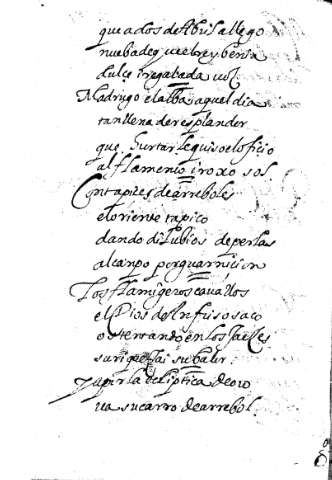 que a dos de Abril allego
nueba de q̃ el rey benia
dulce iregalada uoz
Madrugo el alba aquel dia
tan llena de resplandor
que hurtar le quiso el oficio
al flamenco iroxo sol
Con tapices de arreboles
el oriente tapico
dando dilubios de perlas
al canpo por guarnicion
Los flamigeros cauallos
el Dios de
ostentando en los Jaeces
su riqueça i su balor
y por la ecliptica de oro
ua su carro de arrebol.